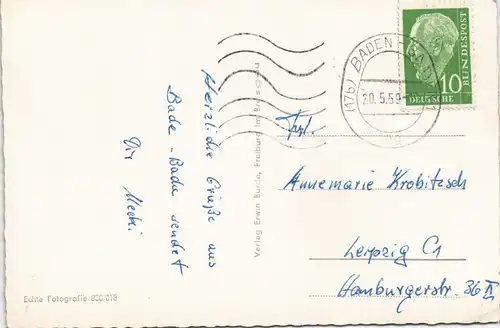 Herzliche Grüße aus
Bade-Baden sendet
Dir Mecki
Echte Fotografie 800/018
Verlag Erwin Burda, Freiburg im Breisgau
(17b) BADEN-BADEN
20.5.59
10
DEUTSCHE
BUNDESPOST
Frl.
Annemarie Krobitzsch
Leipzig C1
Hamburgerstr. 36 II